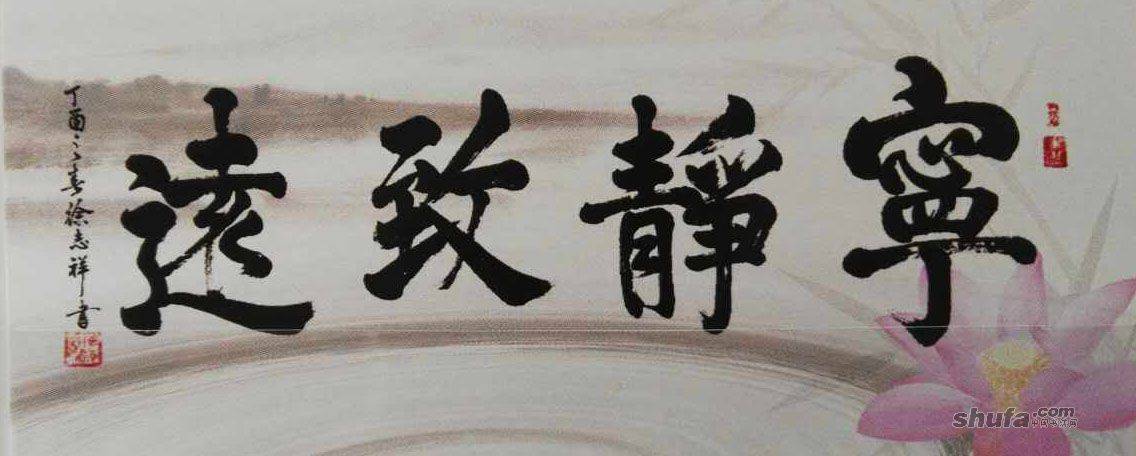 寧靜致遠
丁酉之春徐志祥書
shufa.com
中国书法网